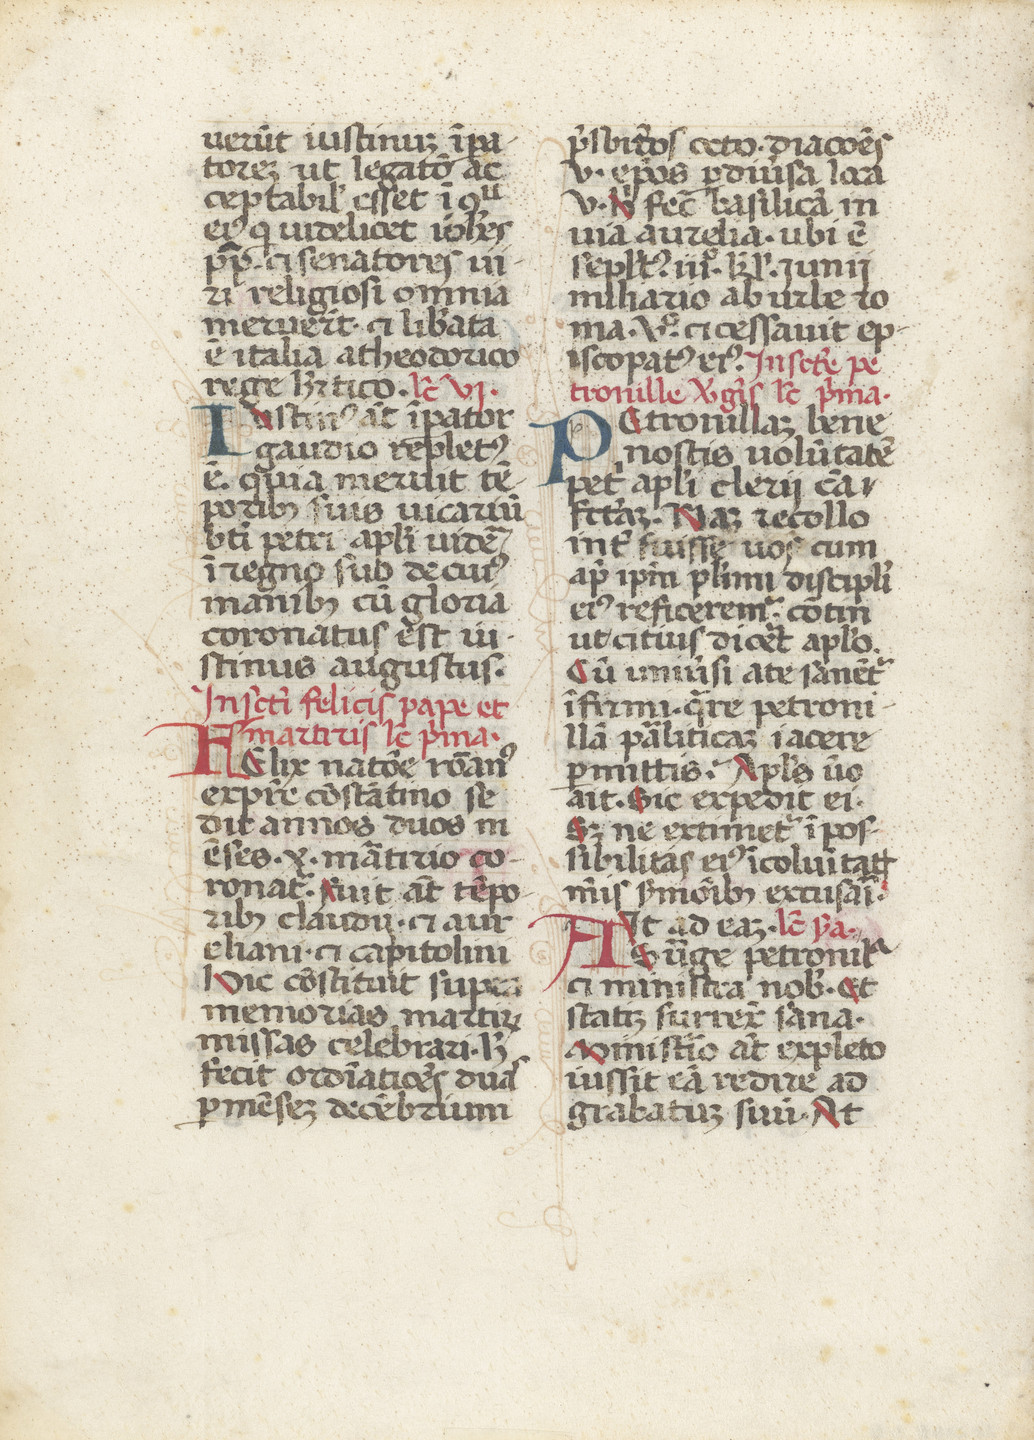 uerūt iustinuʒ īpa-
toreʒ ut legatō ac
ceptabil' esset ī qu
ei' q uidelicet ioh'es
pp̄. ci senatores ui-
ri religiosi omnia
meruer̄t. ci lib'ata
ē italia a theodorico
rege h'rtico. lc̄ vj.
Iustin' aūt īpator
gaudio replet'
ē. quia meruit tē-
porib; suis uicariū
bt̄i petri apl'i uidē
ī regno sub de cui'
manib; cū gloria
coronatus est iu-
stinus augustus.
In sct̄i felicis pape et
martiris lc̄ p'ma.
FElix natōe rōan'
ex pr̄e cōstātino se
dit annos duos m
ēses. x. mātirio co-
ronat'. Fuit aūt tēpo
rib; claudii. ci aur
eliani. ci capitolini
Hic cōstituit supra
memorias martirʒ
missas celebrari. h'
fecit ordīatiōes duas
p mēseʒ decēbrium
p'sbit'os octo. diacōes
v. ep̄os p diu'sa loca
v. h' fec̄ basilicā in
uia aurelia. ubi ē
sepl't'. iii°. kl'. junij
miliario ab urbe ro
ma. v°. ci cessauit ep-
iscopat' ei'. In scte pe
tronille v'gīs lc̄ p'ma.
PEtronillaʒ bene
nostis uolūtatē
pet' apl'i clerij cā
fctāʒ. Naʒ recollo
int' fuisse uos cum
ap' ip̄m pl'imi discipl'i
ei' reficerem'. cōtin
ut citius dicēt apl'o.
Cū uniu'si a te sanēt'
īfirmi. q̄re petroni-
llā pāliticaʒ iacere
p mittis. Apl's u'o
ait. Sic expedit ei.
Sʒ ne extimet' īpos-
sibilitas ei' īcoluitatē
n'ris s'mōib; excusāi.
Ait ad eaʒ. lc̄ s'a.
Surge petronill'a
ci ministra nob'. Et
statiʒ surrex' sana.
Ministio aūt expleto
iussit eā redire ad
grabatuʒ suū. At